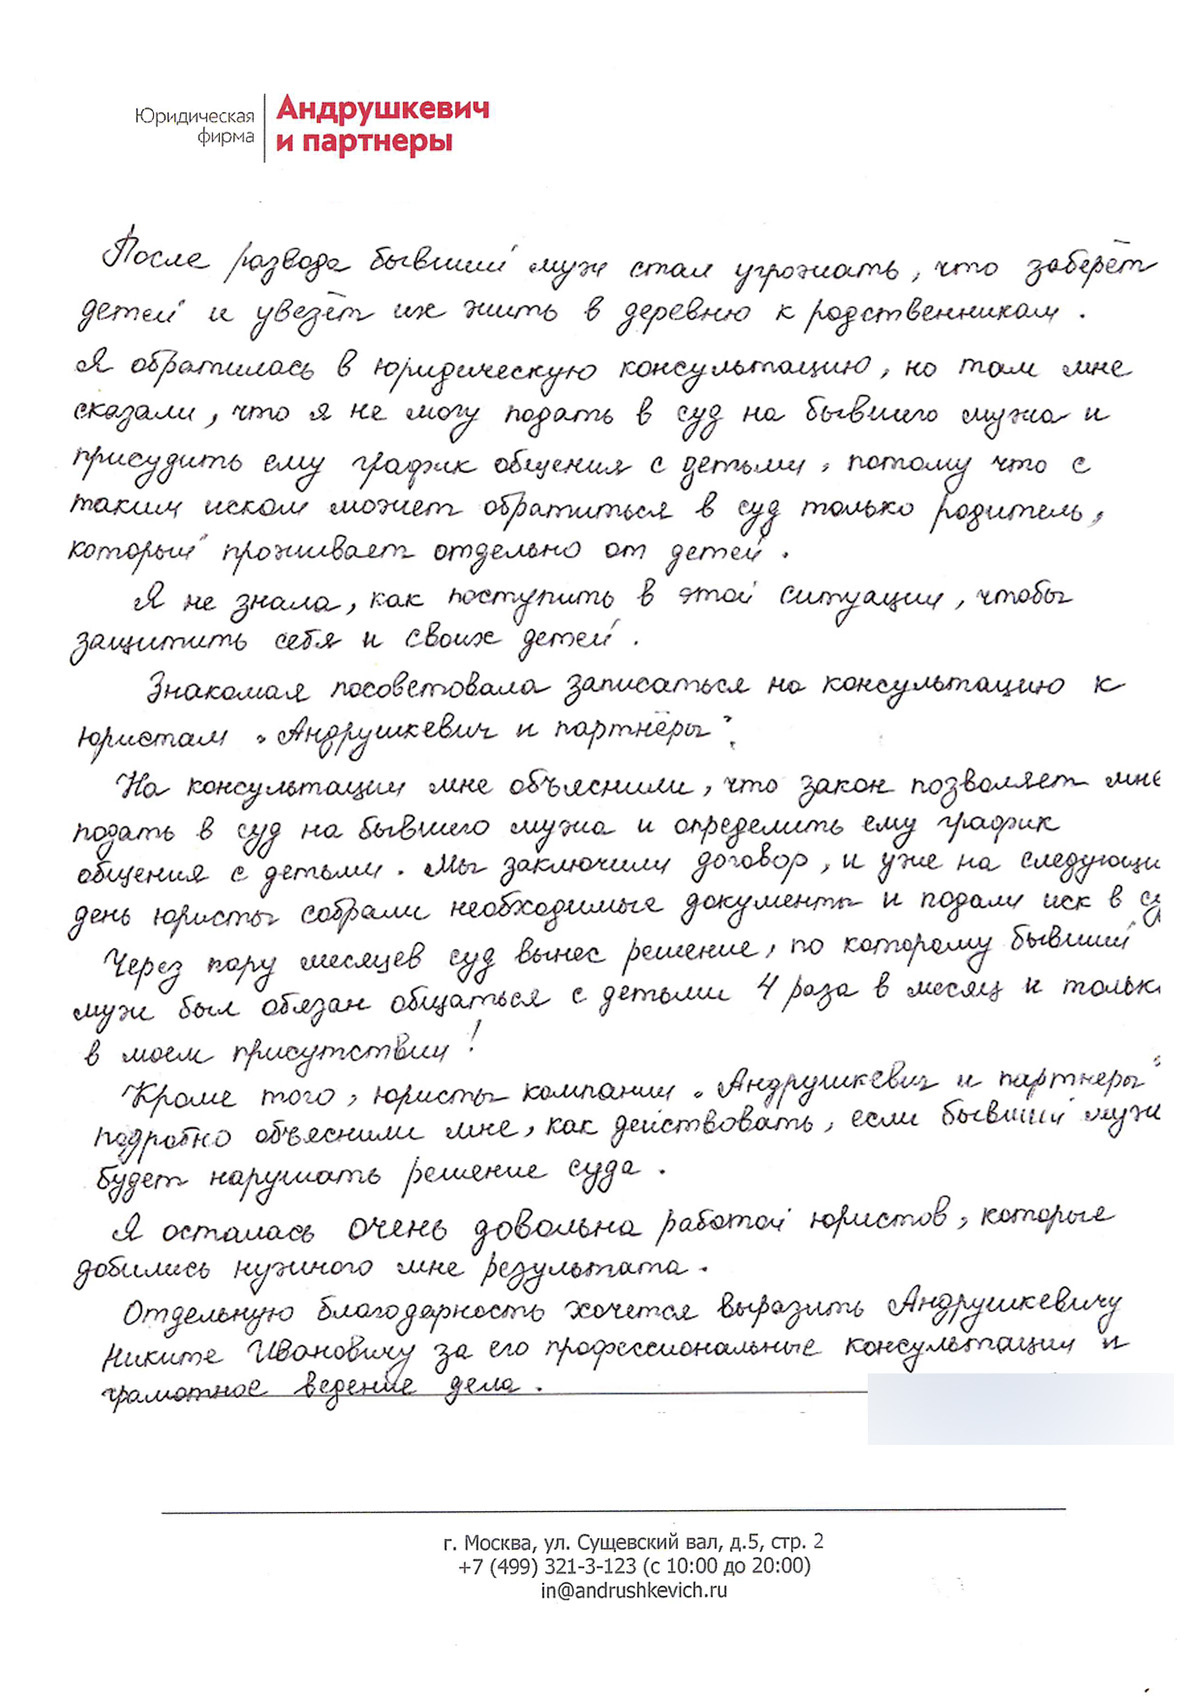 Юридическая
фирма
Андрушкевич
и партнеры
После развода бывший муж стал угрожать, что заберёт
детей и увезёт их жить в деревню к родственникам.
Я обратилась в юридическую консультацию, но там мне
сказали, что я не могу подать в суд на бывшего мужа и
присудить ему график общения с детьми, потому что с
таким иском может обратиться в суд только родитель,
который проживает отдельно от детей.
Я не знала, как поступить в этой ситуации, чтобы
защитить себя и своих детей.
Знакомая посоветовала записаться на консультацию к
юристам „Андрушкевич и партнёры".
На консультации мне объяснили, что закон позволяет мне
подать в суд на бывшего мужа и определить ему график
общения с детьми. Мы заключили договор, и уже на следующи
день юристы собрали необходимые документы и подали иск в су
Через пару месяцев суд вынес решение, по которому бывший
муж был обязан общаться с детьми 4 раза в месяц и тольк
в моем присутствии!
Кроме того, юристы компании „Андрушкевич и партнеры"
подробно объяснили мне, как действовать, если бывший муж
будет нарушать решение суда.
Я осталась очень довольна работой юристов, которые
добились нужного мне результата.
Отдельную благодарность хочется выразить Андрушкевичу
Никите Ивановичу за его профессиональные консультации и
грамотное ведение дела.
г. Москва, ул. Сущевский вал, д.5, стр. 2
+7 (499) 321-3-123 (с 10:00 до 20:00)
in@andrushkevich.ru